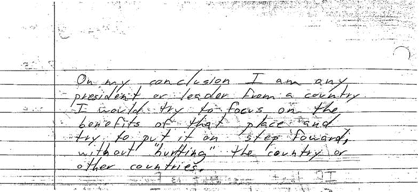 On my conclusion I am any
president or leader from a country
I would try to focus on the
benefits of that place and
try to put it on step foward,
without "hurting" the country or
other countries.